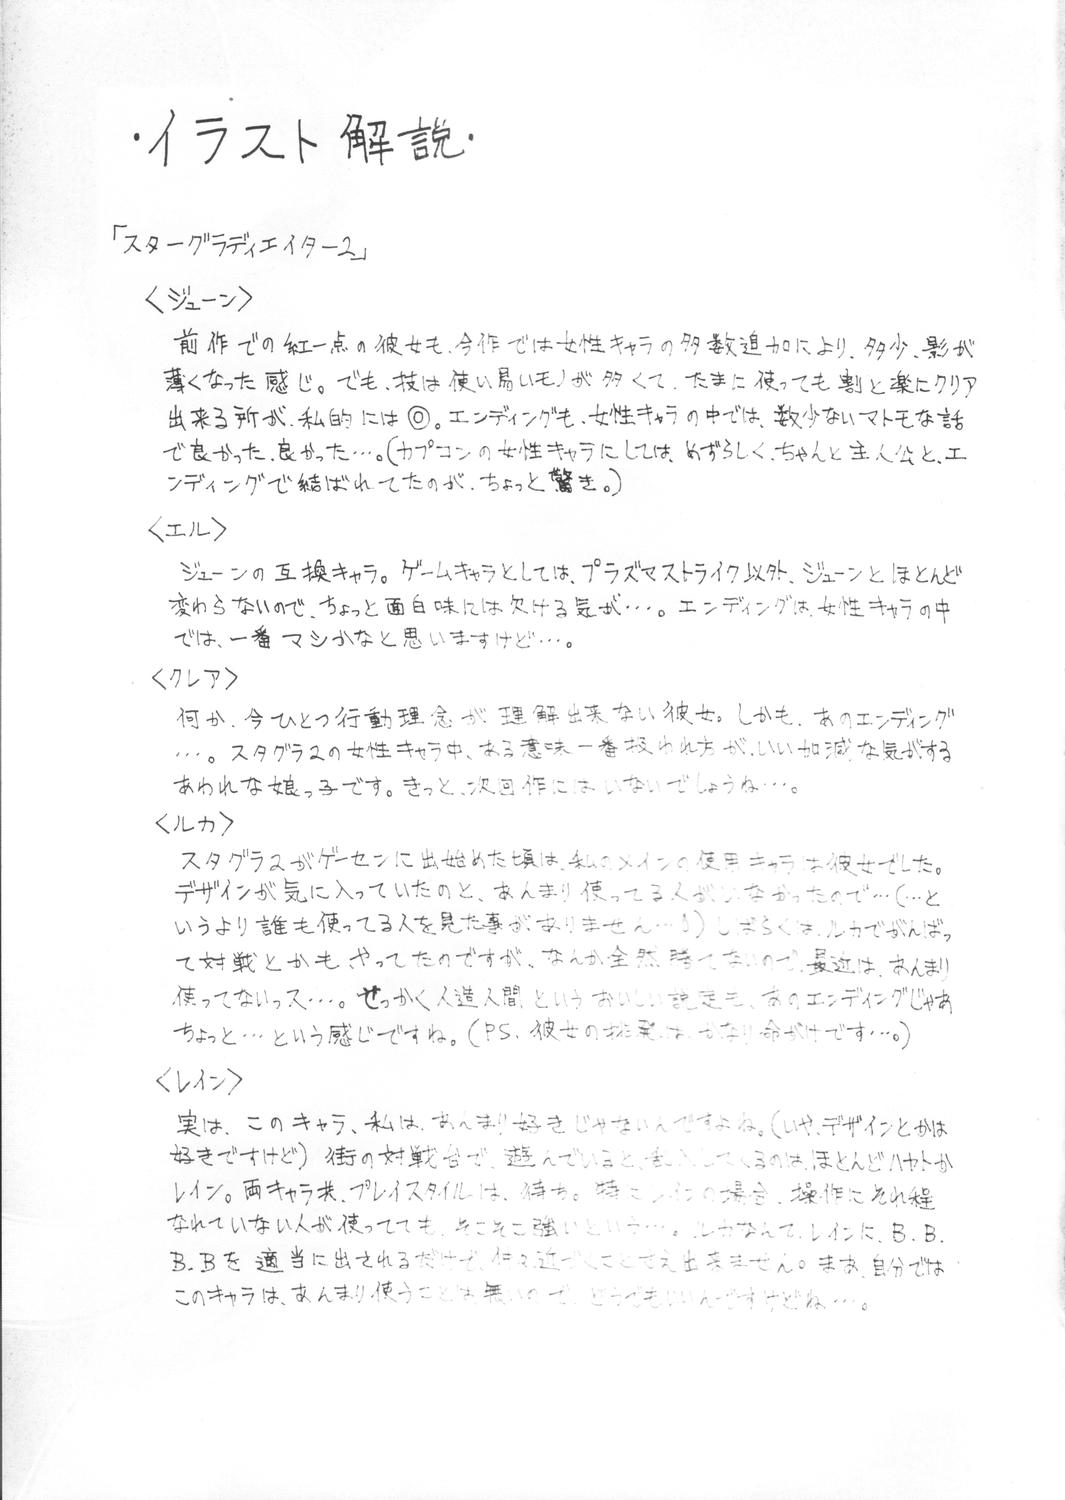 ・イラスト解説・
「スターグラディエイター2」
〈ジューン〉
前作での紅一点の彼女も、今作では女性キャラの多数追加により、多少、影が
薄くなった感じ。でも、技は使い易いモノが多くて、たまに使っても割と楽にクリア
出来る所が、私的には◎。エンディングも、女性キャラの中では、数少ないマトモな話
で良かった、良かった…。(カプコンの女性キャラにしては、めずらしく、ちゃんと主人公と、エ
ンディングで結ばれてたのが、ちょっと驚き。)
〈エル〉
ジューンの互換キャラ。ゲームキャラとしては、プラズマストライク以外、ジューンとほとんど
変わらないので、ちょっと面白味には欠ける気が…。エンディングは、女性キャラの中
では、一番マシかなと思いますけど…。
〈クレア〉
何か、今ひとつ行動理念が理解出来ない彼女。しかも、あのエンディング
…。スタグラ2の女性キャラ中、ある意味一番扱われ方が、いい加減な気がする
あわれな娘っ子です。きっと、次回作にはいないでしょうね…。
〈ルカ〉
スタグラ2がゲーセンに出始めた頃は、私のメインの使用キャラは彼女でした。
デザインが気に入っていたのと、あんまり使ってる人がいなかったので…(…と
いうより誰も使ってる人を見た事がありません…)しばらくは、ルカでがんばっ
て対戦とかも、やってたのですが、なんか全然勝てないので、最近は、あんまり
使ってないっス…。せっかく人造人間というおいしい設定も、あのエンディングじゃあ
ちょっと…という感じですね。(P.S. 彼女の挑発は、かなり命がけです…。)
〈レイン〉
実は、このキャラ、私は、あんまり好きじゃないんですよね。(いや、デザインとかは
好きですけど)街の対戦台で、遊んでいると、乱入してくるのは、ほとんどハヤトか
レイン。両キャラ共、プレイスタイルは、待ち。特にレインの場合、操作にそれ程
なれていない人が使ってても、そこそこ強いという…。ルカなんて、レインに、B.B.
B.Bを適当に出されるだけで、近づくことさえ出来ません。まあ、自分では
このキャラは、あんまり使うことは無いので、どうでもいいんですけどね…。